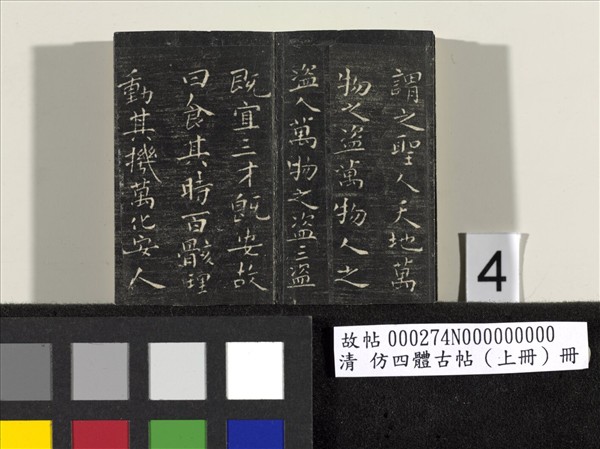 謂之聖人天地萬
物之盜萬物人之
盜人萬物之盜三盜
既宜三才既安故
曰食其時百骸理
動其機萬化安人
4
故帖 000274N000000000
清 仿四體古帖（上冊）冊